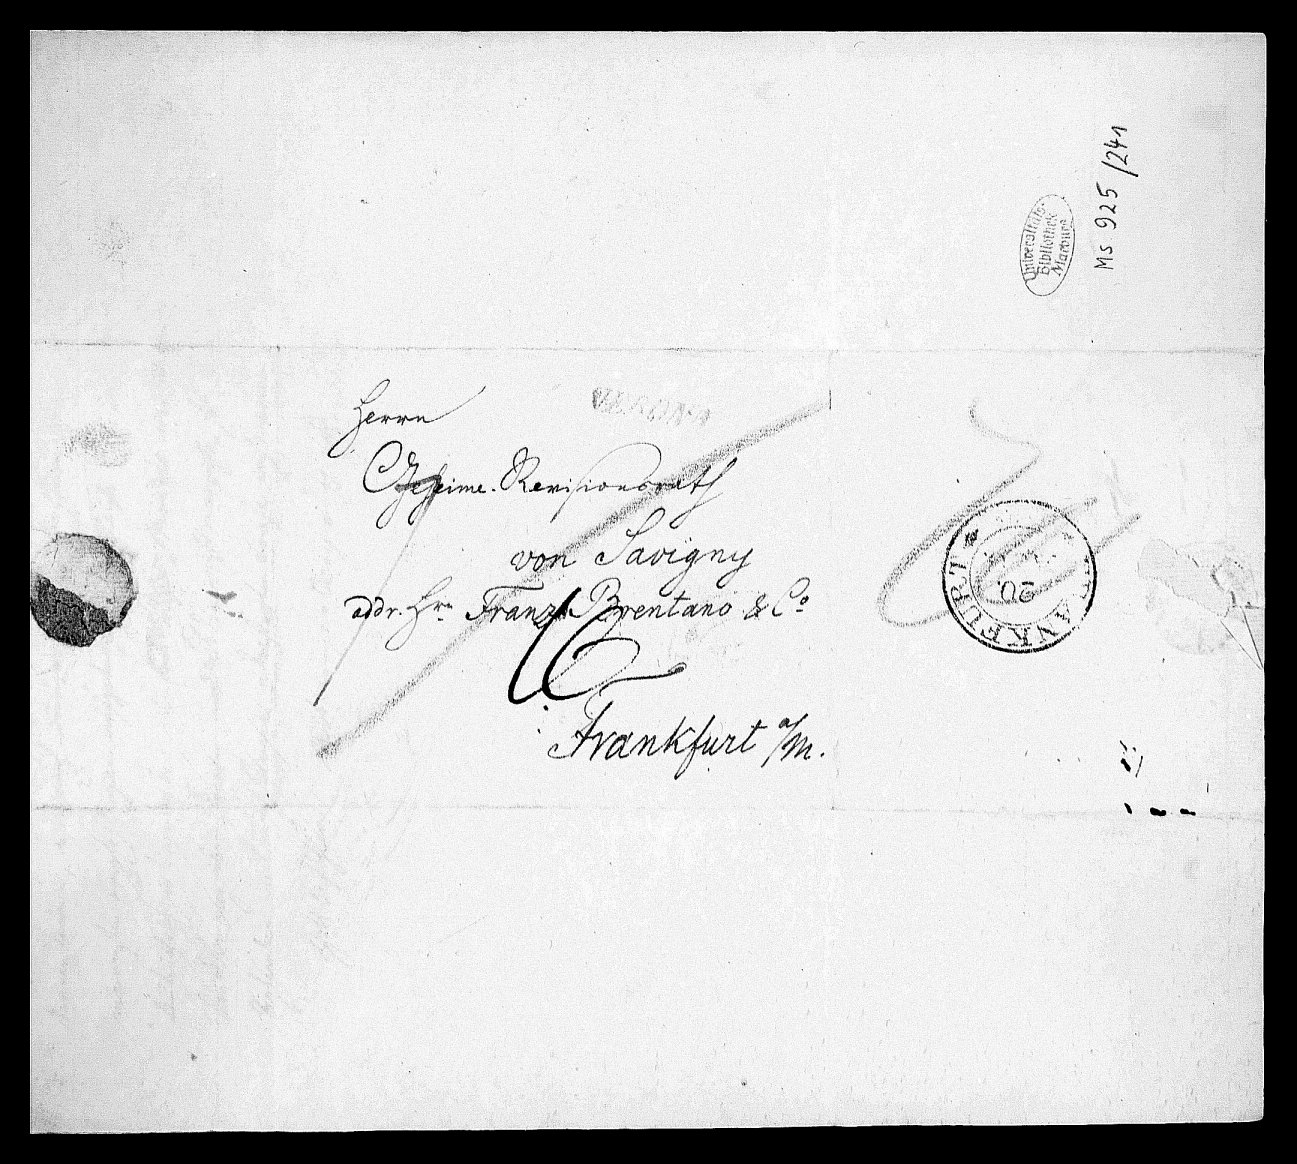 Ms 925/241
Universitäts-
Bibliothek
Marburg
VERONA
Herrn
Geheime-Revisionsrath
von Savigny
addr. Hrn Franz Brentano & Co
16
Frankfurt a/M.
FRANKFURT
20.